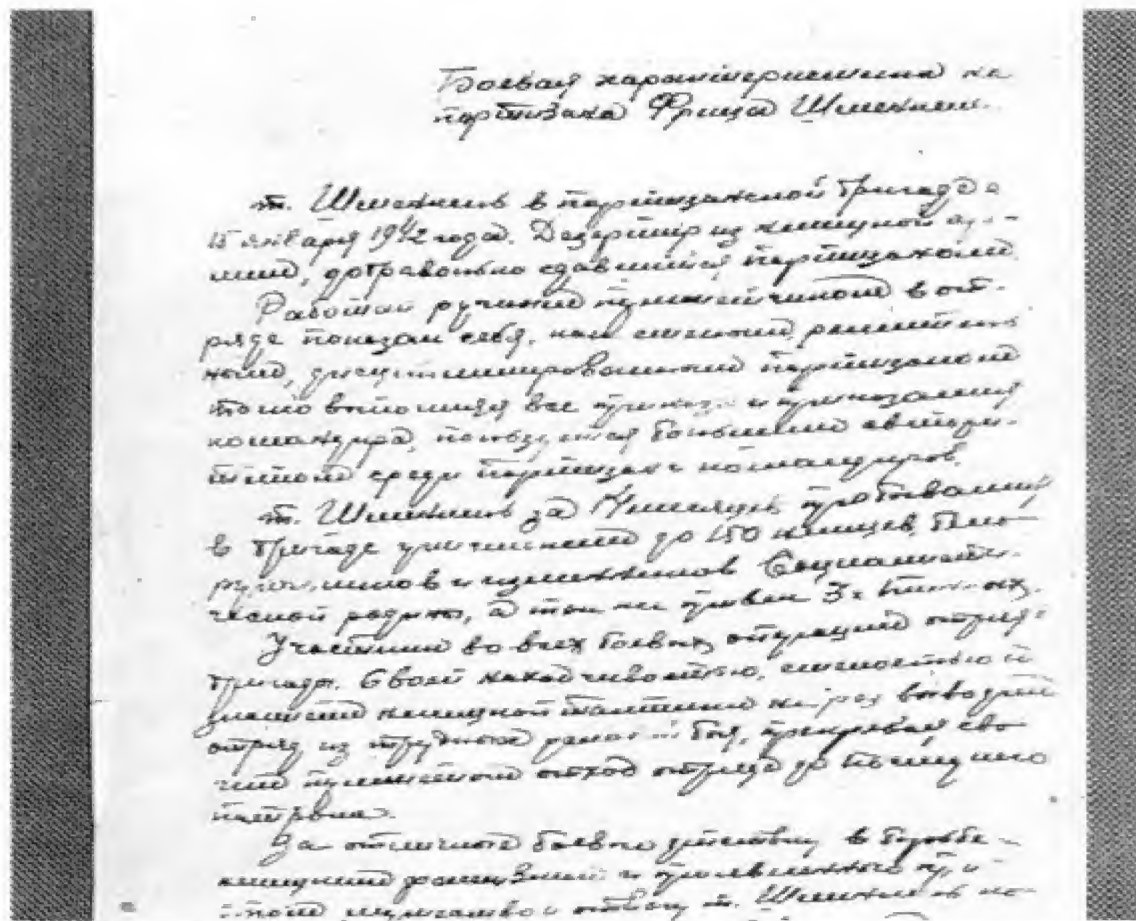 Боевая характеристика на
партизана Фрица Шменкель.
т. Шменкель в партизанской бригаде с
15 января 1942 года. Дезертир из немецкой ар-
мии, добровольно сдавшийся партизанам.
Работая ручным пулеметчиком в от-
ряде показал себя, как смелым, решитель
ным, дисциплинированным партизаном
точно выполняя все приказы и приказания
командира, пользуется большим автори-
тетом среди партизан и командиров.
т. Шменкель за месяцев пребывания
в бригаде уничтожил до 150 немцев,
и изменников Социалисти-
ческой родины, а так же привел 3х
Участник во всех боевых операций
бригады. Своей находчивостью, смелостью и
знанием немецкой тактики не раз выводил
отряд из трудных боя, прикрывая сво-
им пулеметом отход отряда до последнего
патрона.
За отличное боевые действия в борьбе с
немецким фашизмом и проявленные при
мужество и отвагу т. Шменкель